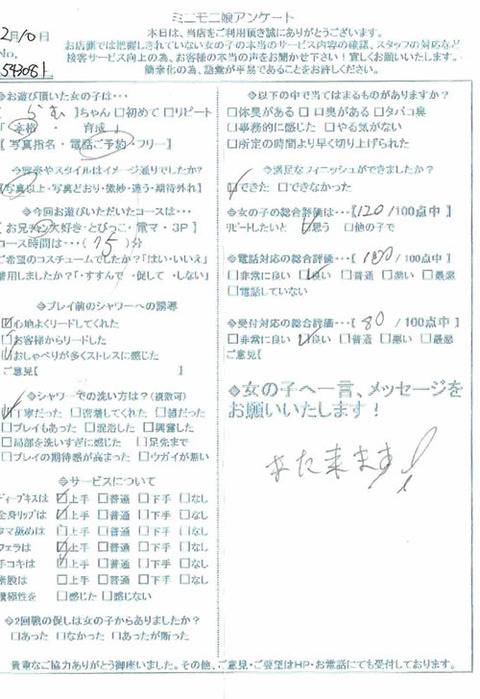 ミニモニ娘アンケート
2月10日
No.
本日は、当店をご利用頂き誠にありがとうございます。
お店側では把握しきれていない女の子の本当のサービス内容の確認、スタッフの対応など
接客サービス向上の為、お客様の本当の声をお聞かせ下さい！宜しくお願いいたします。
簡素化の為、語彙が平易であることをお許しください。
お遊び頂いた女の子は…
らむ 】ちゃん □初めて □リピート
「 本格 ・ 育成 」
【 写真指名・電話ご予約・フリー】
容姿やスタイルはイメージ通りでしたか？
写真以上・写真どおり・微妙・違う・期待外れ】
◇今回お遊びいただいたコースは…
お兄チャン大好き・とびっこ・電マ・3P】
コース時間は…( 75 )分
ご希望のコスチュームでたか？「はい・いいえ」
着用しましたか？「すすんで・促して・しない」
◇プレイ前のシャワーへの誘導
☑心地よくリードしてくれた
□お客様からリードした
□おしゃべりが多くストレスに感じた
ご意見【 】
◇シャワーでの洗い方は？（複数可）
丁寧だった □密着してくれた □雑だった
□プレイもあった □混浴した □興奮した
□局部を洗いすぎに感じた □足先まで
□プレイの期待感が高まった □ウガイが無い
◇サービスについて
ディープキスは ☑上手 □普通 □下手 □なし
全身リップは ☑上手 □普通 □下手 □なし
タマ舐めは □上手 □普通 □下手 □なし
フェラは ☑上手 □普通 □下手 □なし
手コキは ☑上手 □普通 □下手 □なし
素股は □上手 □普通 □下手 □なし
積極性を □感じた □感じない
◇2回戦の促しは女の子からありましたか？
□あった □なかった □あったが断った
◇以下の中で当てはまるものがありますか？
□体臭がある □口臭がある □タバコ臭
□事務的に感じた □やる気がない
□所定の時間より早く切り上げられた
◇満足なフィニッシュができましたか？
☑できた □できなかった
◇女の子の総合評価は…【120/100点中】
リピートしたいと ☑思う □他の子で
◇電話対応の総合評価…【100/100点中】
□非常に良い ☑良い □普通 □悪い □最悪
□電話していない
◇受付対応の総合評価…【80/100点中】
□非常に良い ☑良い □普通 □悪い □最悪
ご意見【
◇女の子へ一言、メッセージを
お願いいたします！
また来ます！
貴重なご協力ありがとう御座いました。その他、ご意見・ご要望はHP・お電話にても受付しております。